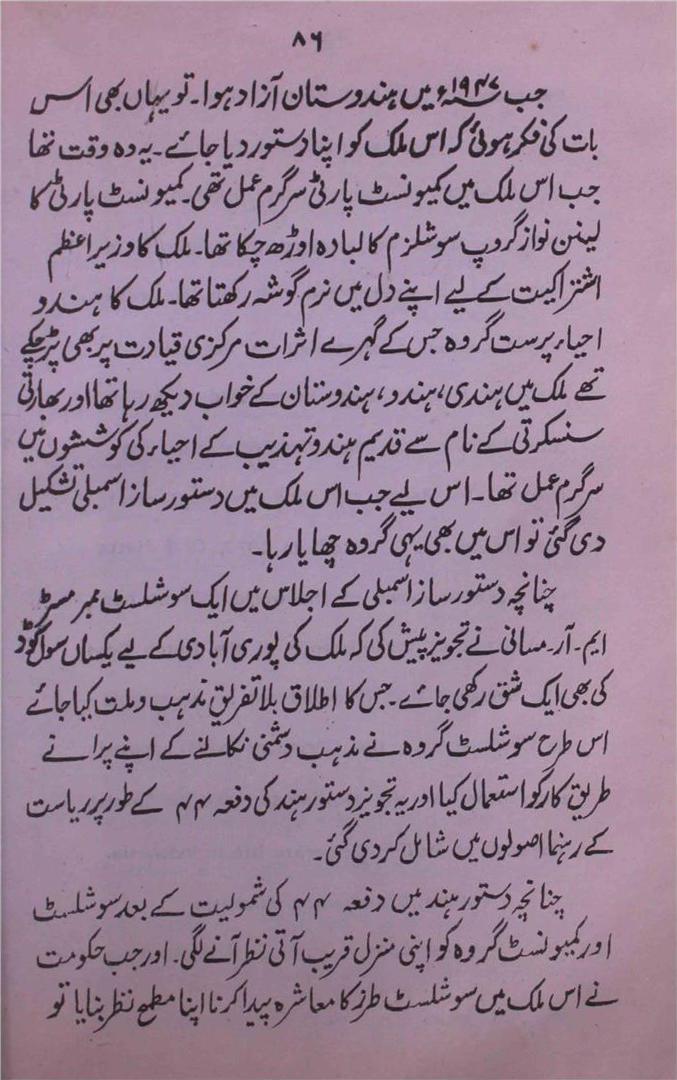 ۸۶
جب ۱۹۴۷ء میں ہندوستان آزاد ہوا۔ تو یہاں بھی اس
بات کی فکر ہوئی کہ اس ملک کو اپنا دستور دیا جائے۔ یہ وہ وقت تھا
جب اس ملک میں کمیونسٹ پارٹی سرگرم عمل تھی۔ کمیونسٹ پارٹی کا
لینن نواز گروپ سوشلزم کا لبادہ اوڑھ چکا تھا۔ ملک کا وزیر اعظم
اشتراکیت کے لیے اپنے دل میں نرم گوشہ رکھتا تھا۔ ملک کا ہندو
احیاء پرست گروہ جس کے گہرے اثرات مرکزی قیادت پر بھی پڑ چکے
تھے ملک میں ہندی، ہندو، ہندوستان کے خواب دیکھ رہا تھا اور بھارتی
سنسکرتی کے نام سے قدیم ہندو تہذیب کے احیاء کی کوششوں میں
سرگرم عمل تھا۔ اس لیے جب اس ملک میں دستور ساز اسمبلی تشکیل
دی گئی تو اس میں بھی یہی گروہ چھایا رہا۔
چنانچہ دستور ساز اسمبلی کے اجلاس میں ایک سوشلسٹ ممبر مسٹر
ایم۔ آر۔ مسانی نے تجویز پیش کی کہ ملک کی پوری آبادی کے لیے یکساں سول کوڈ
کی بھی ایک شق رکھی جائے۔ جس کا اطلاق بلا تفریق مذہب و ملت کیا جائے
اس طرح سوشلسٹ گروہ نے مذہب دشمنی نکالنے کے اپنے پرانے
طریق کار کو استعمال کیا اور یہ تجویز دستور ہند کی دفعہ ۴۴ کے طور پر ریاست
کے رہنما اصولوں میں شامل کر دی گئی۔
چنانچہ دستور ہند میں دفعہ ۴۴ کی شمولیت کے بعد سوشلسٹ
اور کمیونسٹ گروہ کو اپنی منزل قریب آتی نظر آنے لگی۔ اور جب حکومت
نے اس ملک میں سوشلسٹ طرز کا معاشرہ پیدا کرنا اپنا مطمح نظر بنایا تو